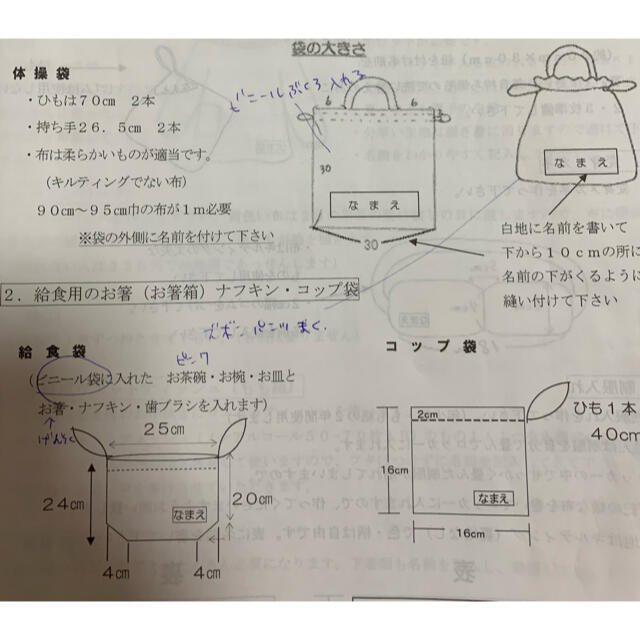 袋の大きさ
体操袋
・ひもは７０㎝　２本
・持ち手２６．５㎝　２本
・布は柔らかいものが適当です。
（キルティングでない布）
９０㎝～９５㎝巾の布が１ｍ必要
※袋の外側に名前を付けて下さい
ビニールぶくろ入れる
6　6
30
なまえ
30
なまえ
白地に名前を書いて
下から１０ｃｍの所に
名前の下がくるように
縫い付けて下さい
２．給食用のお箸（お箸箱）ナフキン・コップ袋
給食袋
ピンク
（ビニール袋に入れた　お茶碗・お椀・お皿と
お箸・ナフキン・歯ブラシを入れます）
25㎝
24㎝
20㎝
なまえ
4㎝　4㎝
コップ袋
ひも１本
40㎝
2cm
16cm
なまえ
16cm